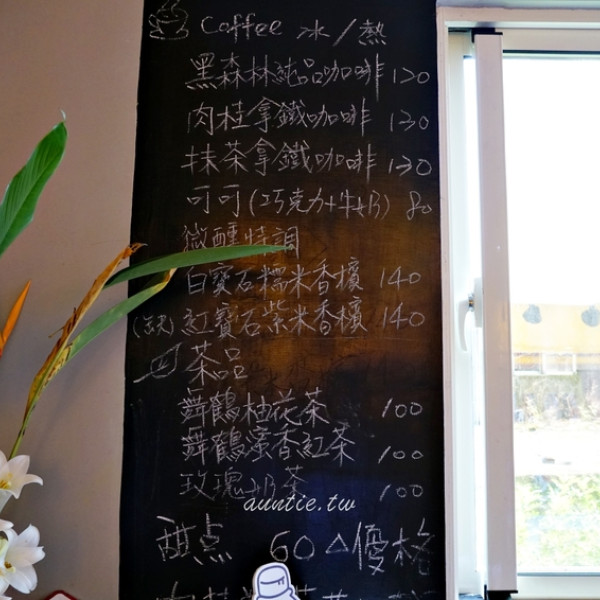 Coffee 冰/熱
黑森林純品咖啡 120
肉桂拿鐵咖啡 130
抹茶拿鐵咖啡 130
可可(巧克力+牛奶) 80
微醺特調
白寶石糯米香檳 140
(缺) 紅寶石紫米香檳 140
茶品
舞鶴柚花茶 100
舞鶴蜜香紅茶 100
玫瑰奶茶 100
auntie.tw
甜点 60 △優格